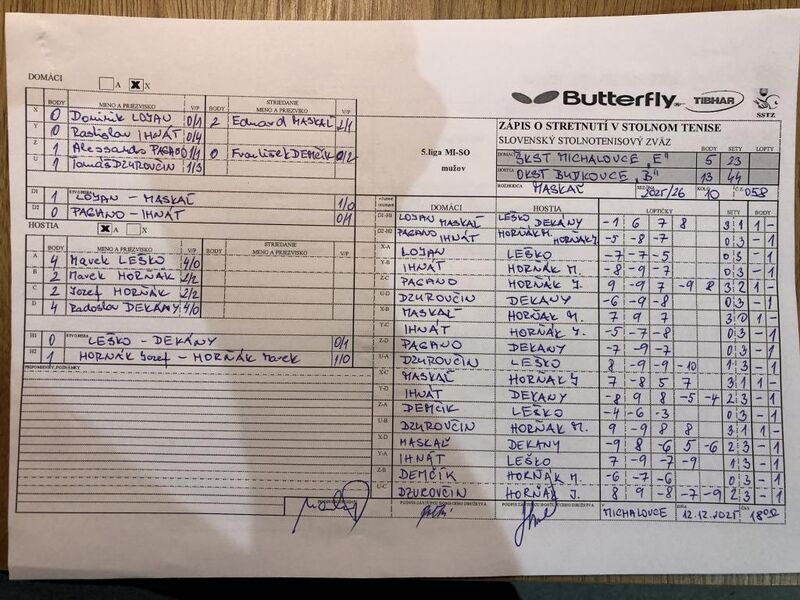 DOMÁCI A X X
BODY MENO A PRIEZVISKO V/P BODY STRIEDANIE MENO A PRIEZVISKO V/P
X 0 Dominik LOJAN 0/1 2 Eduard MASKAĽ 2/1
Y 0 Rastislav IHNÁT 0/4
Z 1 Alessandro PAGANO 1/1 0 František DEMČÍK 0/2
U 1 Tomáš DZUROVČIN 1/3
D1 1 LOJAN - MASKAĽ 1/0
D2 0 PAGANO - IHNÁT 0/1
HOSTIA X A X
BODY MENO A PRIEZVISKO V/P BODY STRIEDANIE MENO A PRIEZVISKO V/P
A 4 Marek LEŠKO 4/0
B 2 Marek HORŇÁK 2/2
C 2 Jozef HORŇÁK 2/2
D 4 Radoslav DEKÁNY 4/0
H1 0 LEŠKO - DEKÁNY 0/1
H2 1 HORŇÁK Jozef - HORŇÁK Marek 1/0
PRIPOMIENKY, POZNÁMKY
Butterfly TIBHAR SSTZ
5.liga MI-SO
mužov
ZÁPIS O STRETNUTÍ V STOLNOM TENISE
SLOVENSKÝ STOLNOTENISOVÝ ZVÄZ BODY SETY LOPTY
DOMÁCI ŠKST MICHALOVCE „E" 5 23
HOSTIA OKST BUDKOVCE „B" 13 44
ROZHODCA MASKAĽ SEZÓNA 2025/26 KOLO 10 Č.Z 058
DOMÁCI HOSTIA LOPTIČKY SETY BODY
D1-H1 LOJAN MASKAĽ LEŠKO DEKÁNY -1 6 7 8 3 1 1 -
D2-H2 PAGANO IHNÁT HORŇÁK M. HORŇÁK J. -5 -8 -7 0 3 - 1
X-A LOJAN LEŠKO -7 -7 -5 0 3 - 1
Y-B IHNÁT HORŇÁK M. -8 -9 -7 0 3 - 1
Z-C PAGANO HORŇÁK J. 9 -9 7 -9 8 3 2 1 -
U-D DZUROVČIN DEKANY -6 -9 -8 0 3 - 1
X-B MASKAĽ HORŇAK M. 7 9 7 3 0 1 -
Y-C IHNÁT HORŇAK J. -5 -7 -8 0 3 - 1
Z-D PAGANO DEKANY -7 -9 -7 0 3 - 1
U-A DZUROVČIN LEŠKO 8 -9 -9 -10 1 3 - 1
X-C MASKAĽ HORŇAK J 7 -8 5 7 3 1 1 -
Y-D IHNÁT DEKANY -8 9 8 -5 -4 2 3 - 1
Z-A DEMČIK LEŠKO -4 -6 -3 0 3 - 1
U-B DZUROVČIN HORŇAK M. 9 -9 8 8 3 1 1 -
X-D MASKAĽ DEKANY -9 8 -6 5 -6 2 3 - 1
Y-A IHNÁT LEŠKO 7 -9 -7 -9 1 3 - 1
Z-B DEMČÍK HORŇAK M. -6 -7 -6 0 3 - 1
U-C DZUROVČIN HORŇAK J. 8 9 -8 -7 -9 2 3 - 1
PODPIS ZÁSTUPCU DOMÁCEHO DRUŽSTVA PODPIS ZÁSTUPCU HOSŤUJÚCEHO DRUŽSTVA V MICHALOVCE DŇA 12.12.2025 ČAS 18:00